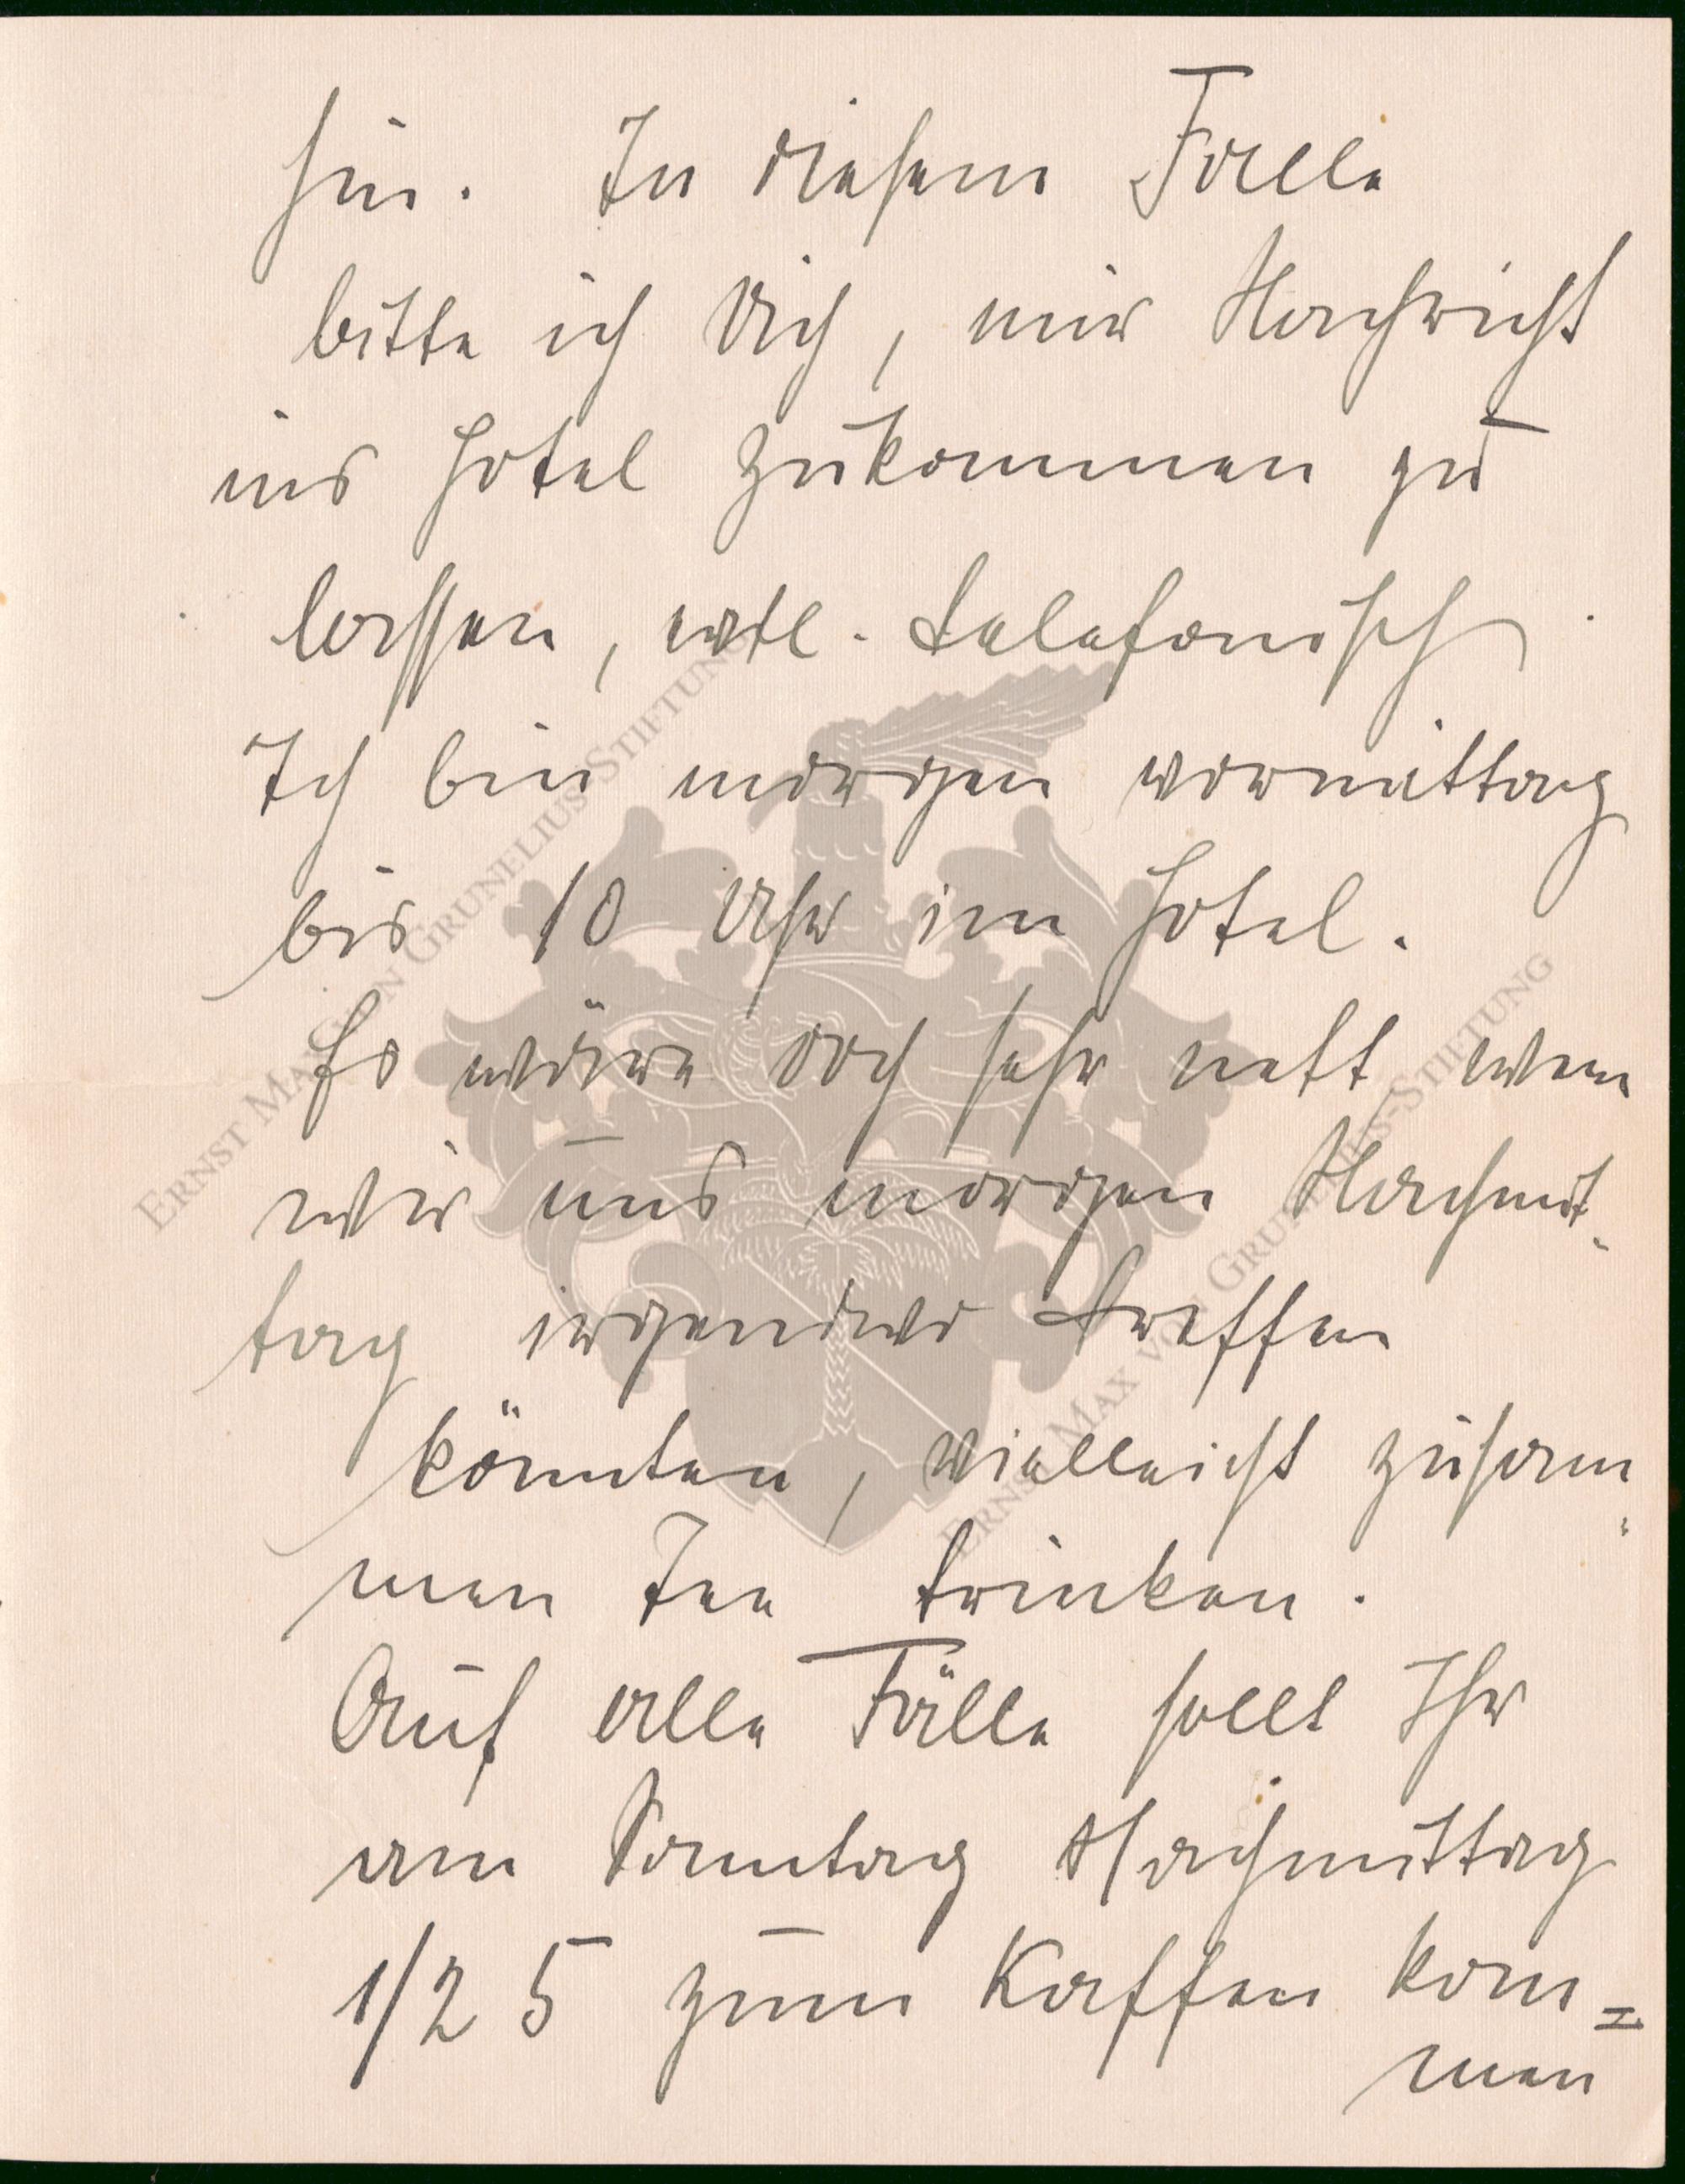 hin. In diesem Falle
bitte ich Dich, mir Nachricht
ins Hotel zukommen zu
lassen, evtl. telefonisch
Ich bin morgen vormittag
bis 10 Uhr im Hotel.
Es wäre doch sehr nett wenn
wir uns morgen Nachmit-
tag irgendwo treffen
könnten, vielleicht zusam-
men Tee trinken.
Auf alle Fälle sollt Ihr
am Sonntag Nachmittag
1/2 5 zum Kaffee kom=
men
ERNST MAX VON GRUNELIUS-STIFTUNG
ERNST MAX VON GRUNELIUS-STIFTUNG